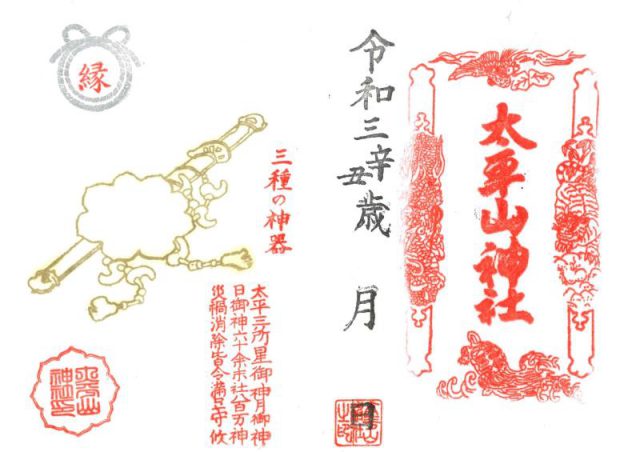 太平山神社
令和三辛丑歳 月 日
縁
三種の神器
太平三所星御神月御神
日御神六十余末社八百万神
災禍消除皆令満足守攸